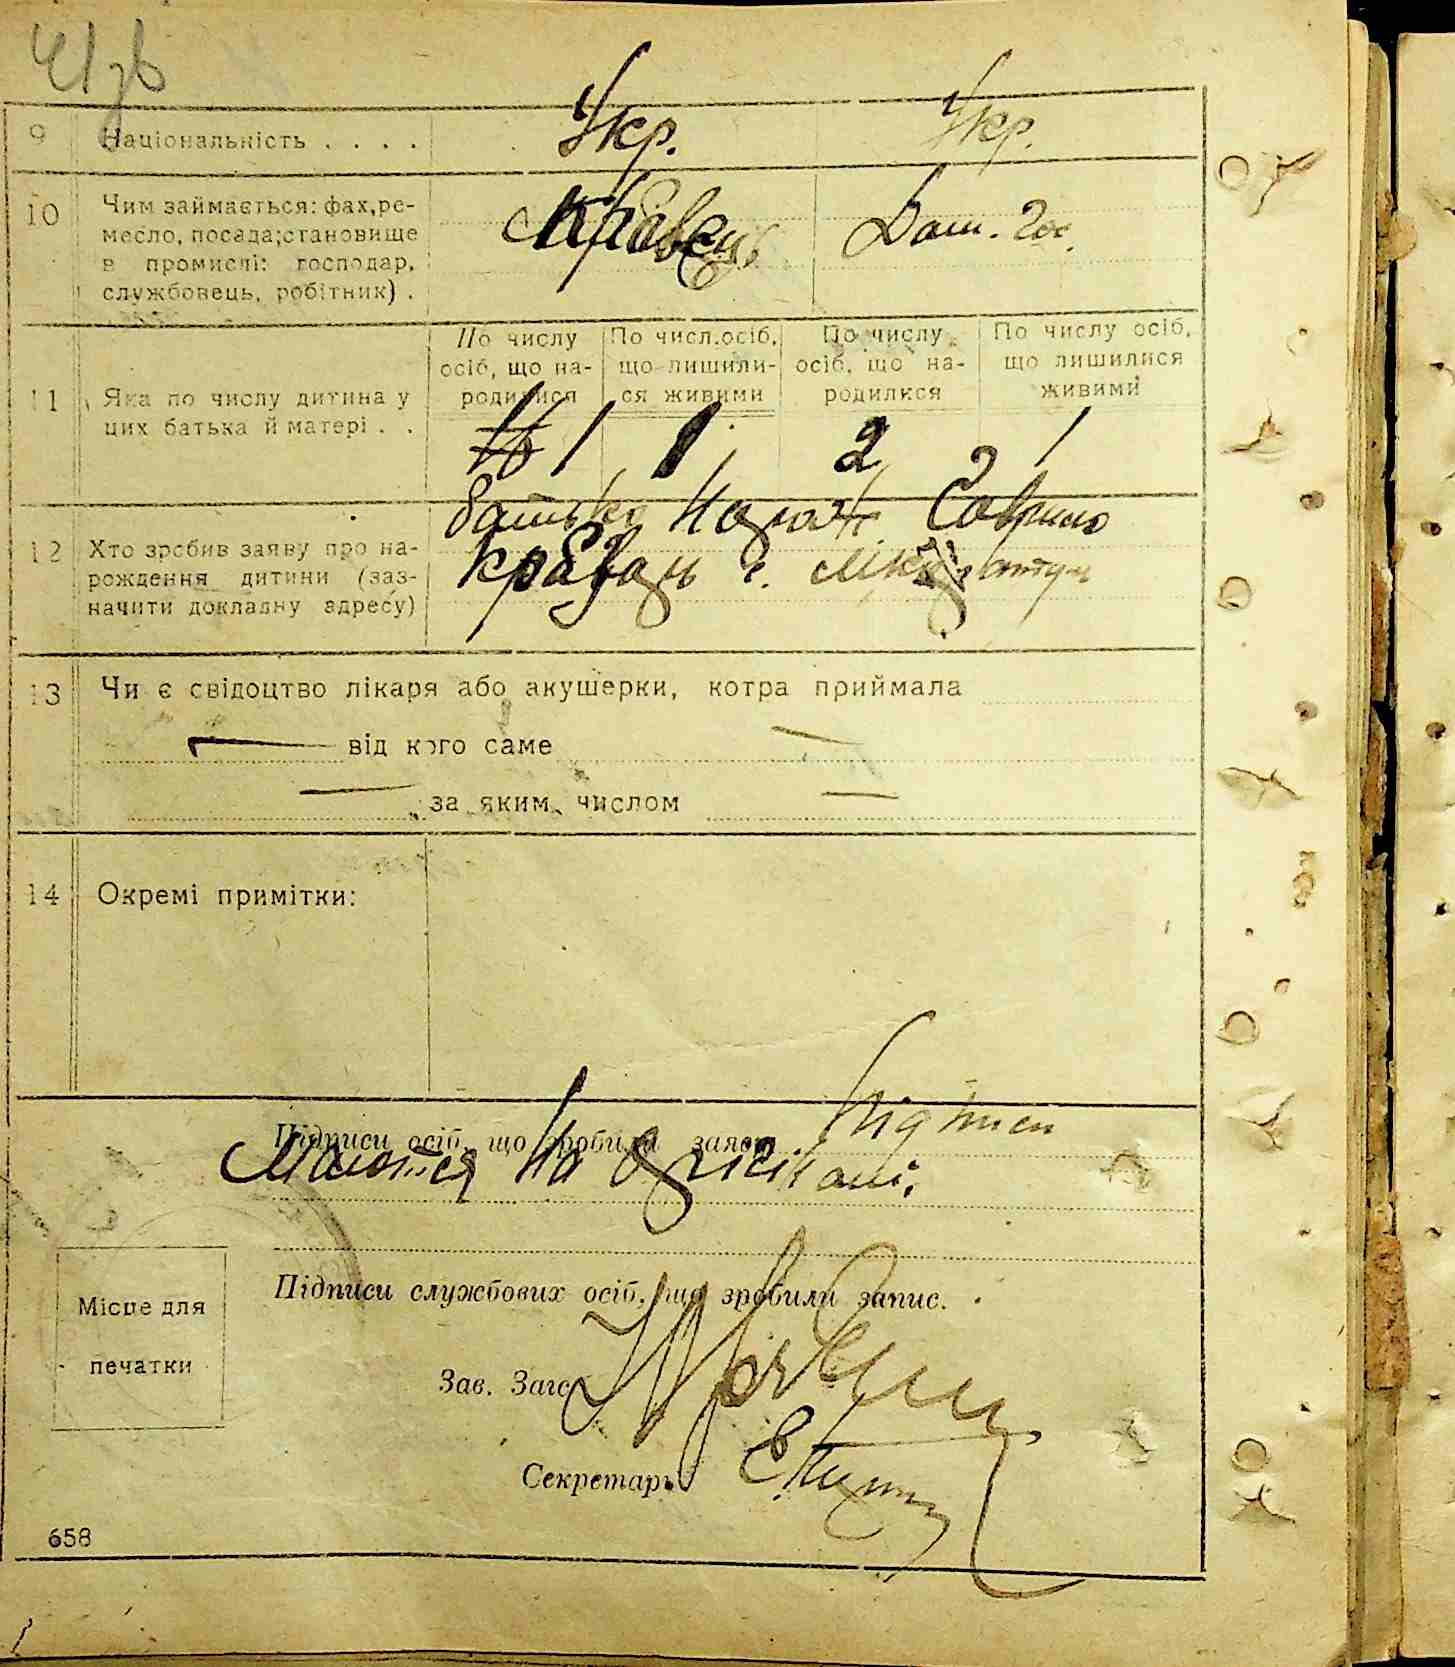 41зв
9 Національність . . . . Укр. Укр.
10 Чим займається: фах, ре-
месло, посада; становище
в промислі: господар,
службовець, робітник) .
Кравець Дом. гос.
11 Яка по числу дитина у
цих батька й матері . .
По числу
осіб, що на-
родилися
По числ.осіб,
що лишили-
ся живими
По числу
осіб, що на-
родилися
По числу осіб,
що лишилися
живими
1 1 2 1
12 Хто зробив заяву про на-
рождення дитини (заз-
начити докладну адресу)
батько
Кравець
13 Чи є свідоцтво лікаря або акушерки, котра приймала
— від кого саме —
— за яким числом —
14 Окремі примітки:
Підписи осіб, що зробили заяву Підписи
Маються на оригіналі.
Підписи службових осіб, що зробили запис.
Місце для
печатки
Зав. Загс
Секретарь
658